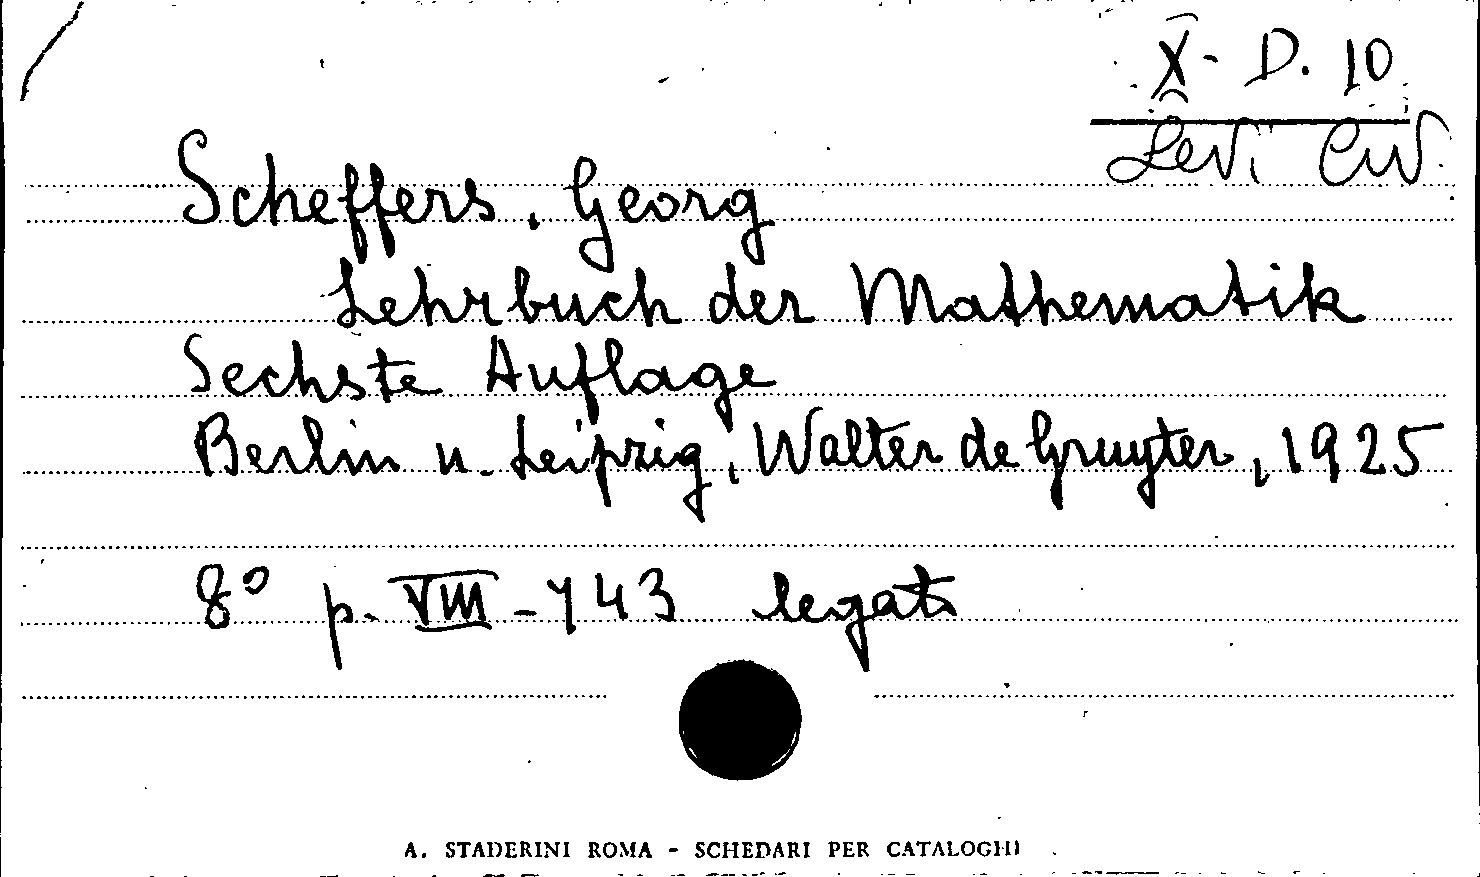 X - D. 10
Levi Civ.
Scheffers, Georg
Lehrbuch der Mathematik
Sechste Auflage
Berlin u. Leipzig, Walter de Gruyter, 1925
8° p. VIII - 743 legato
A. STADERINI ROMA - SCHEDARI PER CATALOGHI